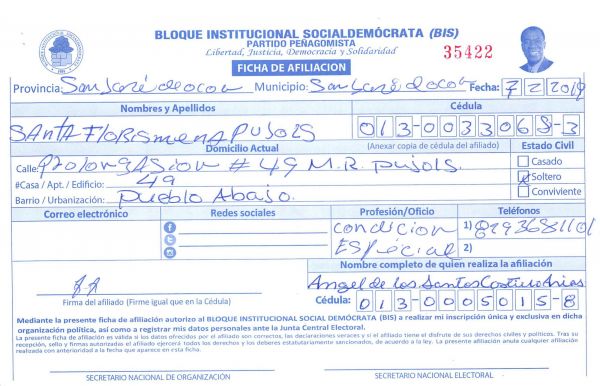 BLOQUE INSTITUCIONAL SOCIALDEMÓCRATA (BIS)
PARTIDO PEÑAGOMISTA
Libertad, Justicia, Democracia y Solidaridad
35422
FICHA DE AFILIACION
Provincia: San José de ocoa Municipio: San José de ocoa Fecha: 7 2 2019
Nombres y Apellidos Cédula
SANTA FLORISMENA PUJOLS 013-0033068-3
Domicilio Actual (Anexar copia de cédula del afiliado) Estado Civil
Calle: Prolongasion # 49 M.R. pujols. Casado
#Casa / Apt. / Edificio: 49 Soltero
Barrio / Urbanización: Pueblo Abajo. Conviviente
Correo electrónico Redes sociales Profesión/Oficio Teléfonos
condicion 1) 8293681101
Especial 2)
Nombre completo de quien realiza la afiliación
Angel de los Santos Arias
Firma del afiliado (Firme igual que en la Cédula) Cédula: 013-0005015-8
Mediante la presente ficha de afiliación autorizo al BLOQUE INSTITUCIONAL SOCIAL DEMÓCRATA (BIS) a realizar mi inscripción única y exclusiva en dicha
organización política, así como a registrar mis datos personales ante la Junta Central Electoral.
La presente ficha de afiliación es válida si los datos ofrecidos por el afiliado son correctos, las declaraciones veraces y si el afiliado tiene el disfrute de sus derechos civiles y políticos. Tras su
recepción, sello y firmas autorizadas el afiliado ejercerá todos los derechos y los deberes estatutariamente sancionados, de acuerdo a la ley. La presente afiliación anula cualquier afiliación
realizada con anterioridad a la fecha que aparece en esta ficha.
SECRETARIO NACIONAL DE ORGANIZACIÓN SECRETARIO NACIONAL ELECTORAL